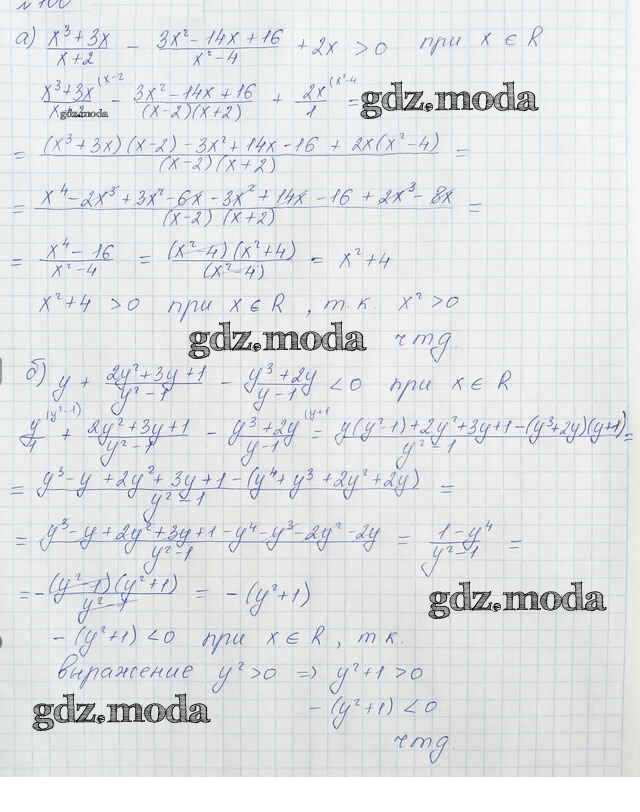 № 100
а) (x³+3x)/(x+2) − (3x²−14x+16)/(x²−4) + 2x > 0 при x ∈ R
(x³+3x)/(x+2) (x−2 − (3x²−14x+16)/((x−2)(x+2)) + 2x/1 (x²−4 = gdz.moda
gdz.moda
= ((x³+3x)(x−2)−3x²+14x−16+2x(x²−4))/((x−2)(x+2)) =
= (x⁴−2x³+3x²−6x−3x²+14x−16+2x³−8x)/((x−2)(x+2)) =
= (x⁴−16)/(x²−4) = ((x²−4)(x²+4))/(x²−4) = x²+4
x²+4 > 0 при x ∈ R, т.к. x² > 0
gdz.moda чтд.
б) y + (2y²+3y+1)/(y²−1) − (y³+2y)/(y−1) < 0 при x ∈ R
y/1 (y²−1) + (2y²+3y+1)/(y²−1) − (y³+2y)/(y−1) (y+1 = (y(y²−1)+2y²+3y+1−(y³+2y)(y+1))/(y²−1) =
= (y³−y+2y²+3y+1−(y⁴+y³+2y²+2y))/(y²−1) =
= (y³−y+2y²+3y+1−y⁴−y³−2y²−2y)/(y²−1) = (1−y⁴)/(y²−1) =
= −((y²−1)(y²+1))/(y²−1) = −(y²+1) gdz.moda
−(y²+1) < 0 при x ∈ R, т.к.
выражение y² > 0 ⇒ y²+1 > 0
gdz.moda −(y²+1) < 0
чтд.